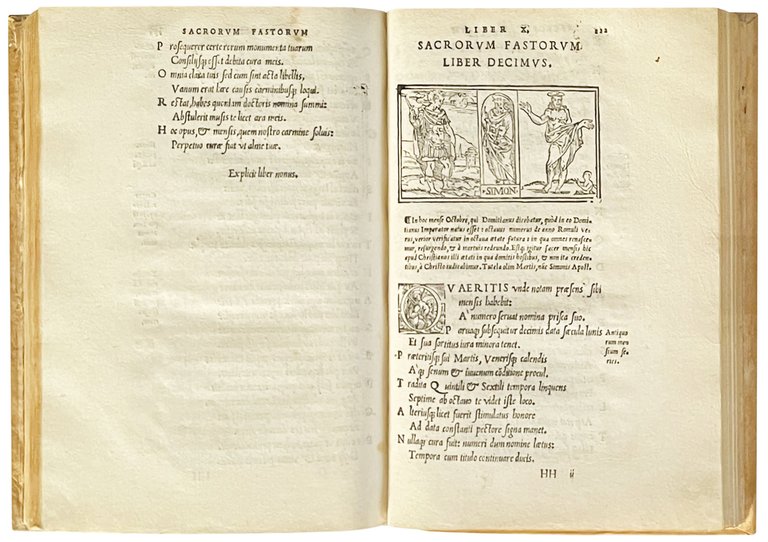 SACRORVM FASTORVM
P rosequerer certe rerum monumenta tuarum
Consilijsq; esset debita cura meis.
O mnia clara tuis sed cum sint acta libellis,
Vanum erat has causes carminibusq; loqui.
R estat, habes quoniam doctoris nomina summi:
Abstulerit musis te licet ara meis.
H oc opus, & mensis, quem nostro carmine soluis:
Perpetuo curæ fuit vt alme tuæ.
Explicit liber nonus.
LIBER X.
SACRORVM FASTORVM
LIBER DECIMVS.
SIMON
¶ In hoc mense Octobri, qui Domitianus dicebatur, quòd in eo Domi-
tianus Imperator natus esset: octauus numerus de anno Romuli ve-
rus, verior verificatur in octaua ætate futura: in qua omnes renasce-
mur, resurgendo, & à mortuis redeundo. Est igitur sacer mensis hic
apud Christianos illi ætati in qua domitis hostibus, & non ita creden-
tibus, à Christo iudicabimur. Tutela olim Martis, nũc Simonis Apost.
QVAERITIS vnde notam præsens sibi
mensis habebit:
A numero seruat nomina prisca suo.
P aruaq; subsequitur decimis data sæcula lunis
Antiquo
rum men
sium se-
ries.
Et sua sortitus iura minora tenet.
P ræteriusq; sui Martis, Venerisq; calendis
Aq; senum & iuuenum cõditione procul.
T radita Quintili & Sextili tempora linquens
Septime ab octauo te videt iste loco.
A lteriusq; licet fuerit stimulatus honore
Ad data constanti pectore signa manet.
N ullaq; cura fuit: numeri dum nomine lætus:
Tempora cum titulo continuare ducis.
HH ii